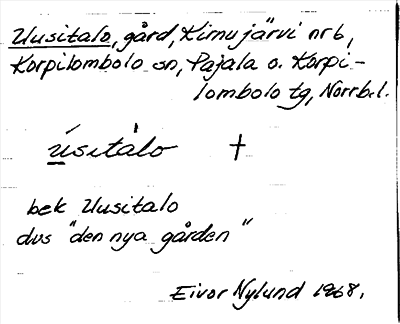 Uusitalo, gård, Kirnujärvi nrb,
Korpilombolo sn, Pajala o. Korpi-
lombolo tg, Norrb.l.
ú̱sitàlo †
bek Uusitalo
dvs "den nya gården"
Eivor Nylund 1968.